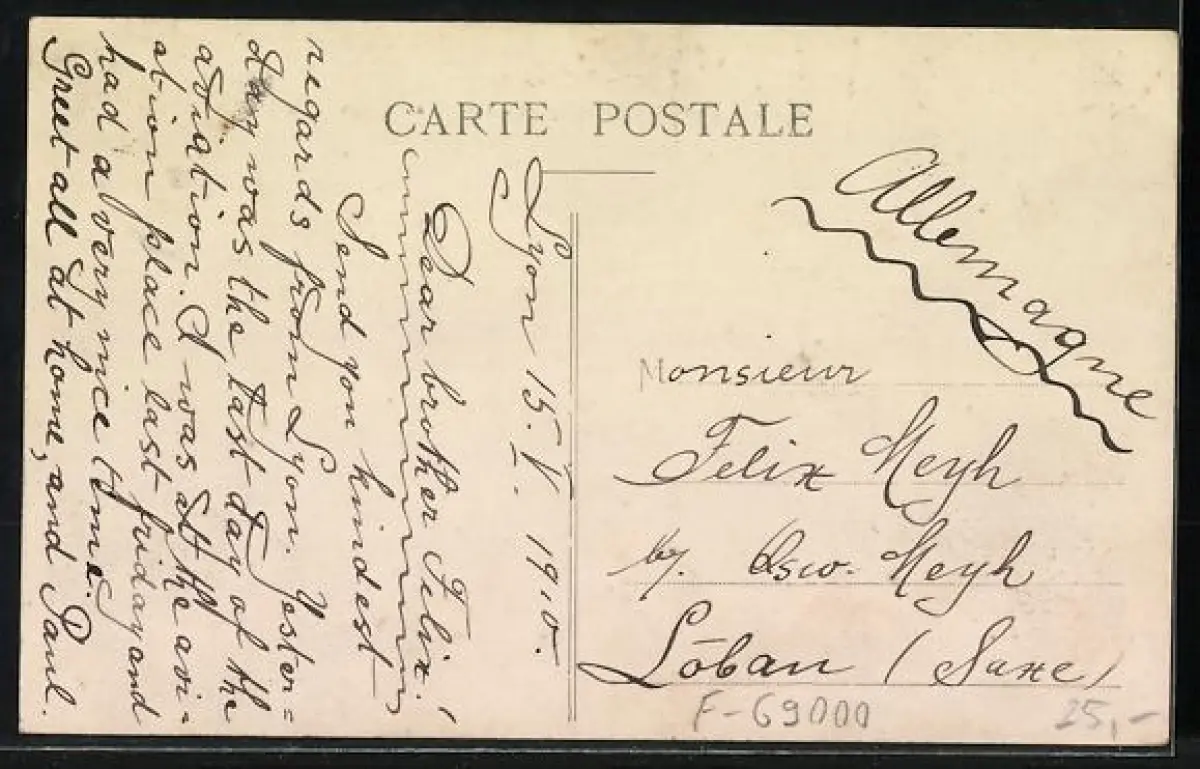 CARTE POSTALE
Lyon 15. V. 1910.
Dear brother Felix!
Send you kindest
regards from Lyon. Yester=
day was the last day of the
aviation. I was at the avi-
ation place last friday and
had a very nice time.
Greet all at home, and Paul.
Allemagne
Monsieur
Felix Heyh
by. Osw. Heyh
Löbau (Saxe)
F-69000
25,-